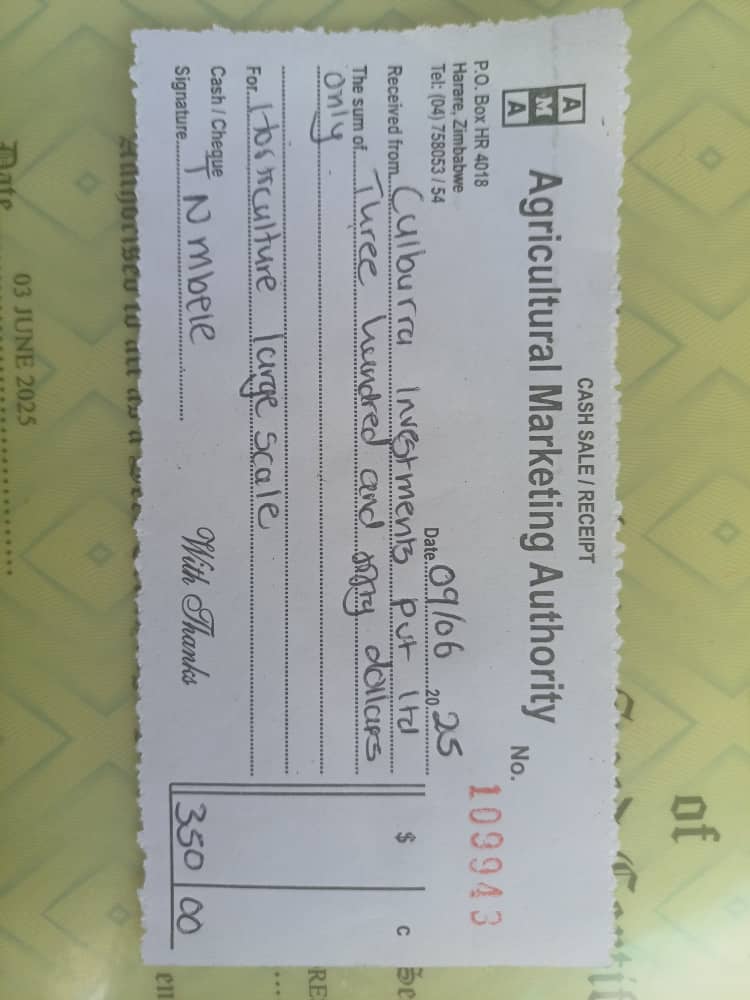 CASH SALE / RECEIPT
A
M
A
Agricultural Marketing Authority
No. 109943
P.O. Box HR 4018
Harare, Zimbabwe
Tel: (04) 758053 / 54
Date 09/06 20 25
Received from Culburra Investments pvt ltd
The sum of Three hundred and dollars
only
$ c
For Horticulture large scale
Cash / Cheque
350 00
Signature T N Mbele
With Thanks
of
03 JUNE 2025
Date